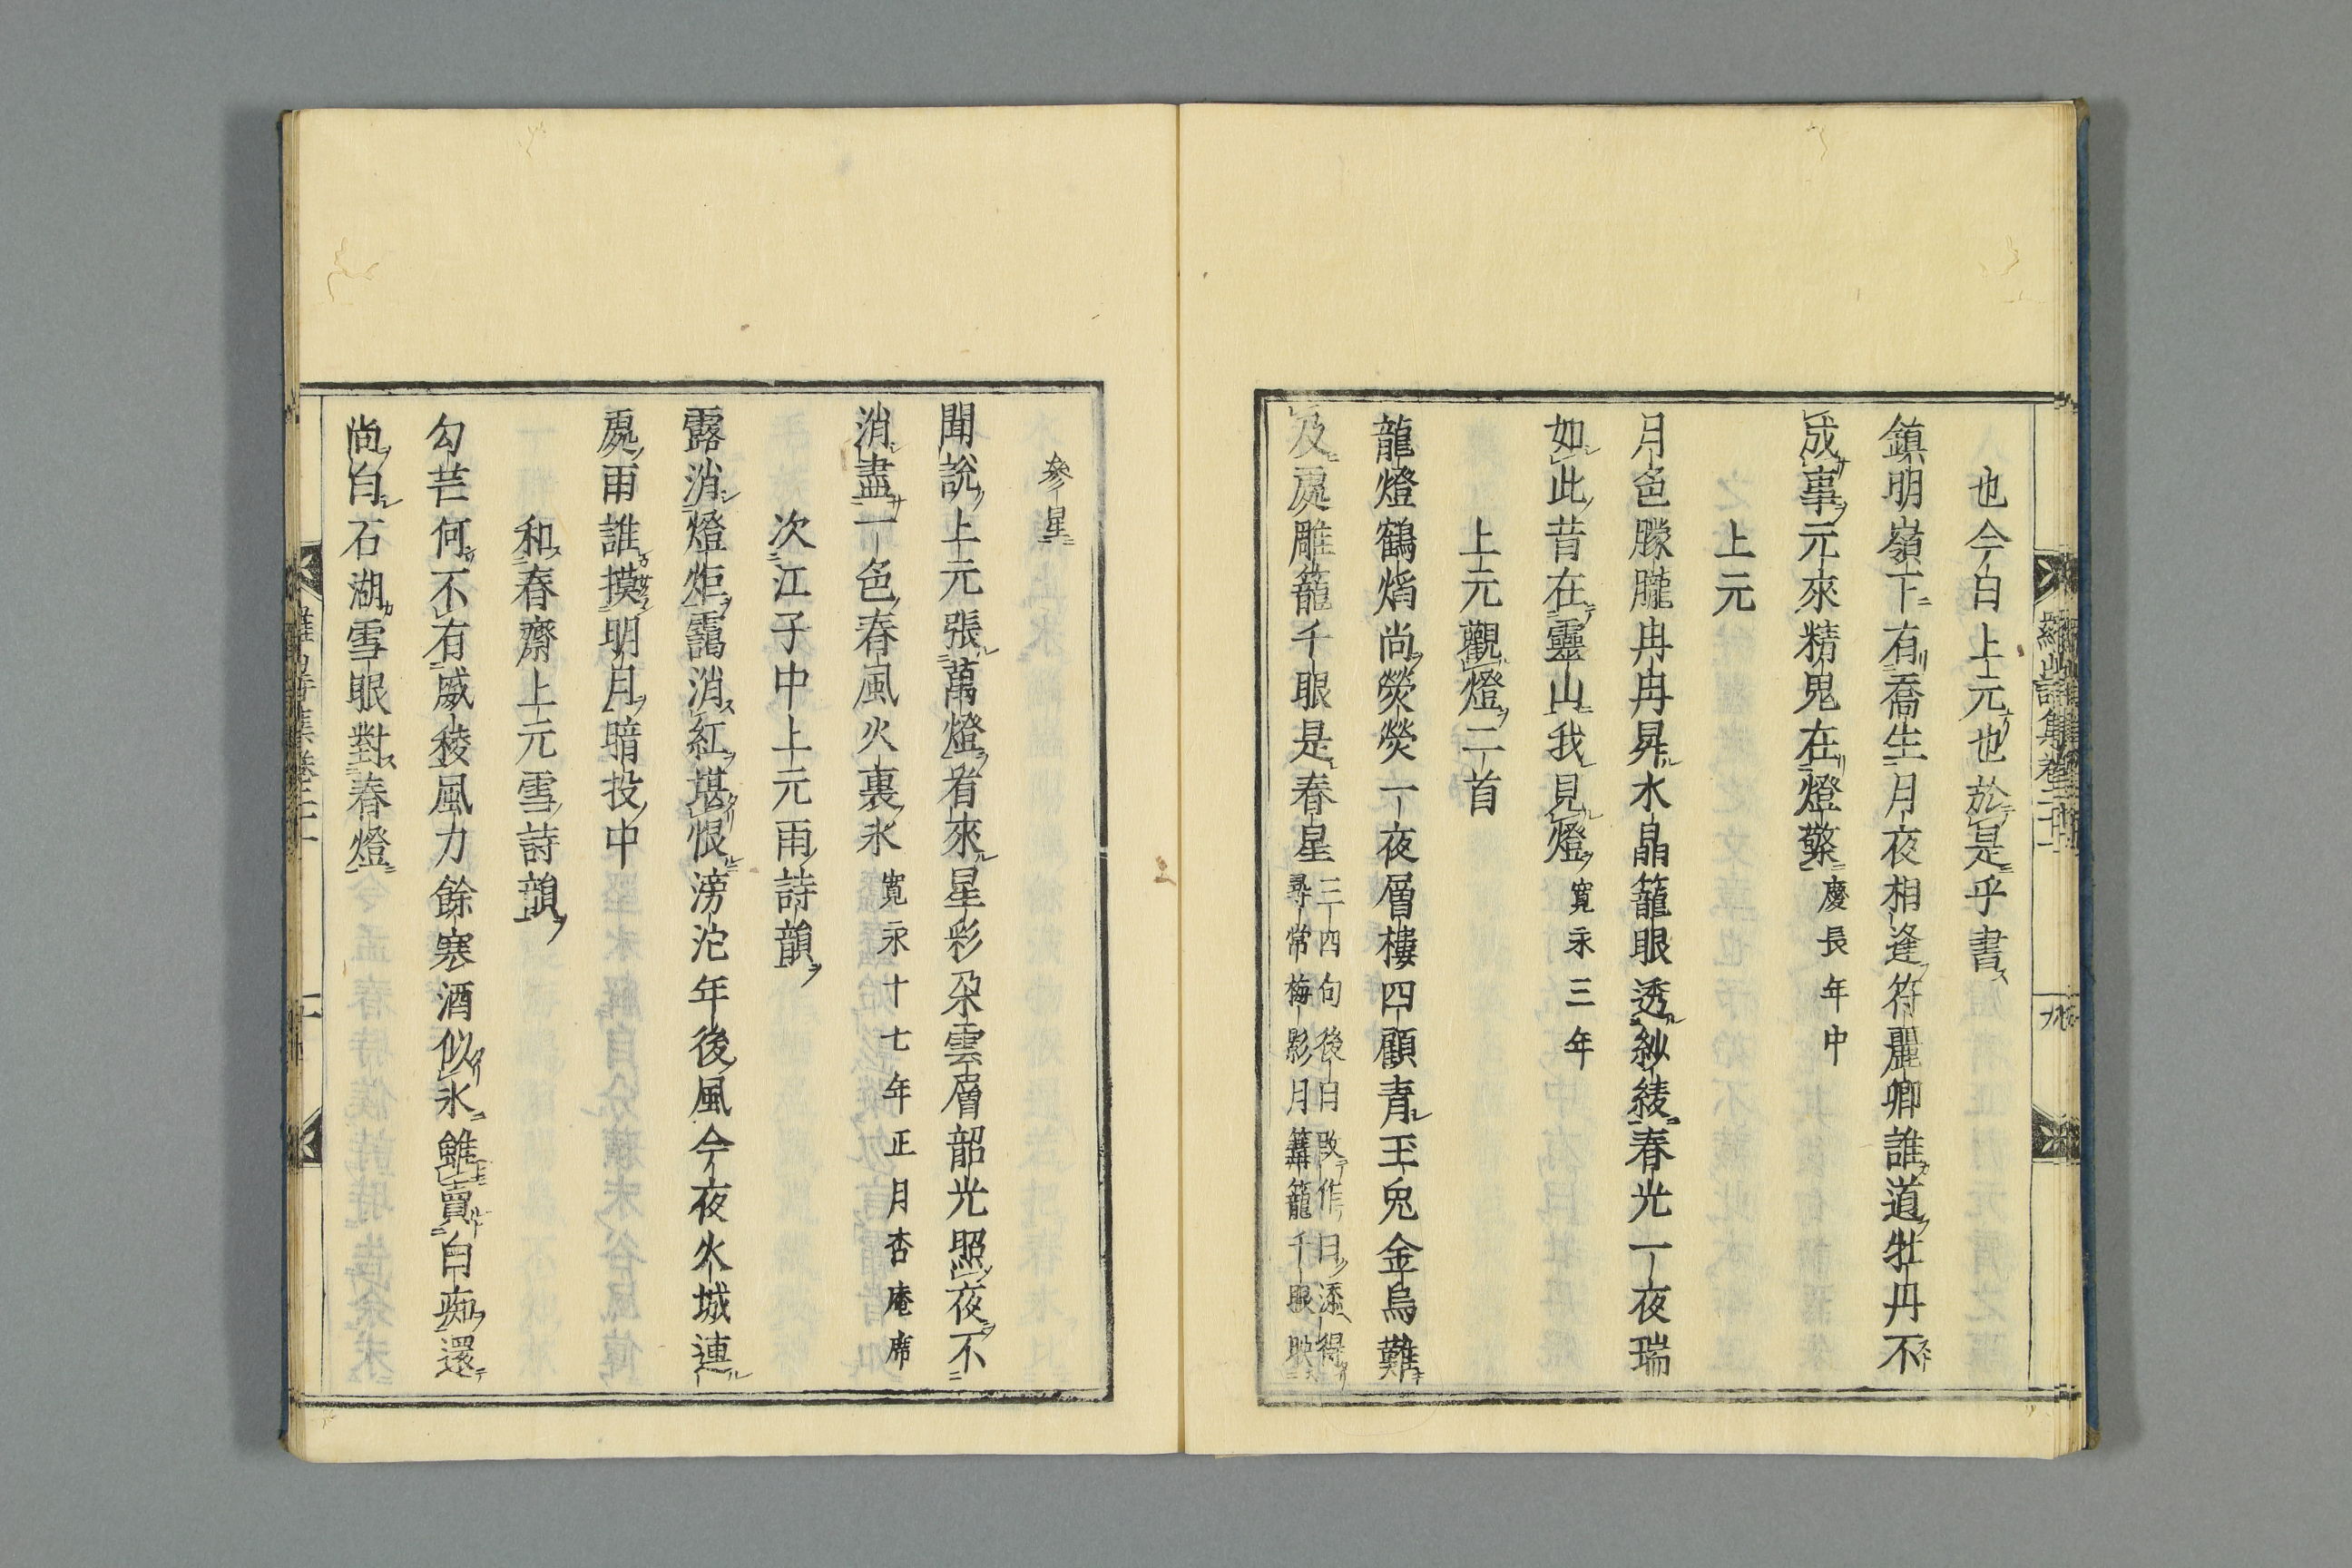 也今白上元也於是乎書
鎮明嶺下有喬生月夜相逢符麗卿誰道牡丹不
成事元來精鬼在燈檠慶長年中
上元
月色朦朧冉冉昇水晶籠眼透紗綾春光一夜瑞
如此昔在靈山我見燈寛永三年
上元觀燈二首
龍燈鶴熖尚熒熒一夜層樓四顧青玉兔金烏難
及處雕籠千眼是春星
三四句後日改作日添得
尋常梅影月篝籠千眼映
參星
聞說上元張萬燈看來星彩朶雲層韶光照夜不
消盡一色春風火裏氷寛永十七年正月杏庵席
次江子中上元雨詩韻
露消燈炬靄消紅堪恨滂沱年後風今夜火城連
處雨誰摸明月暗投中
和春齋上元雪詩韻
勾芒何不有威稜風力餘寒酒似氷雖賣白痴還
尚白石湖雪眼對春燈